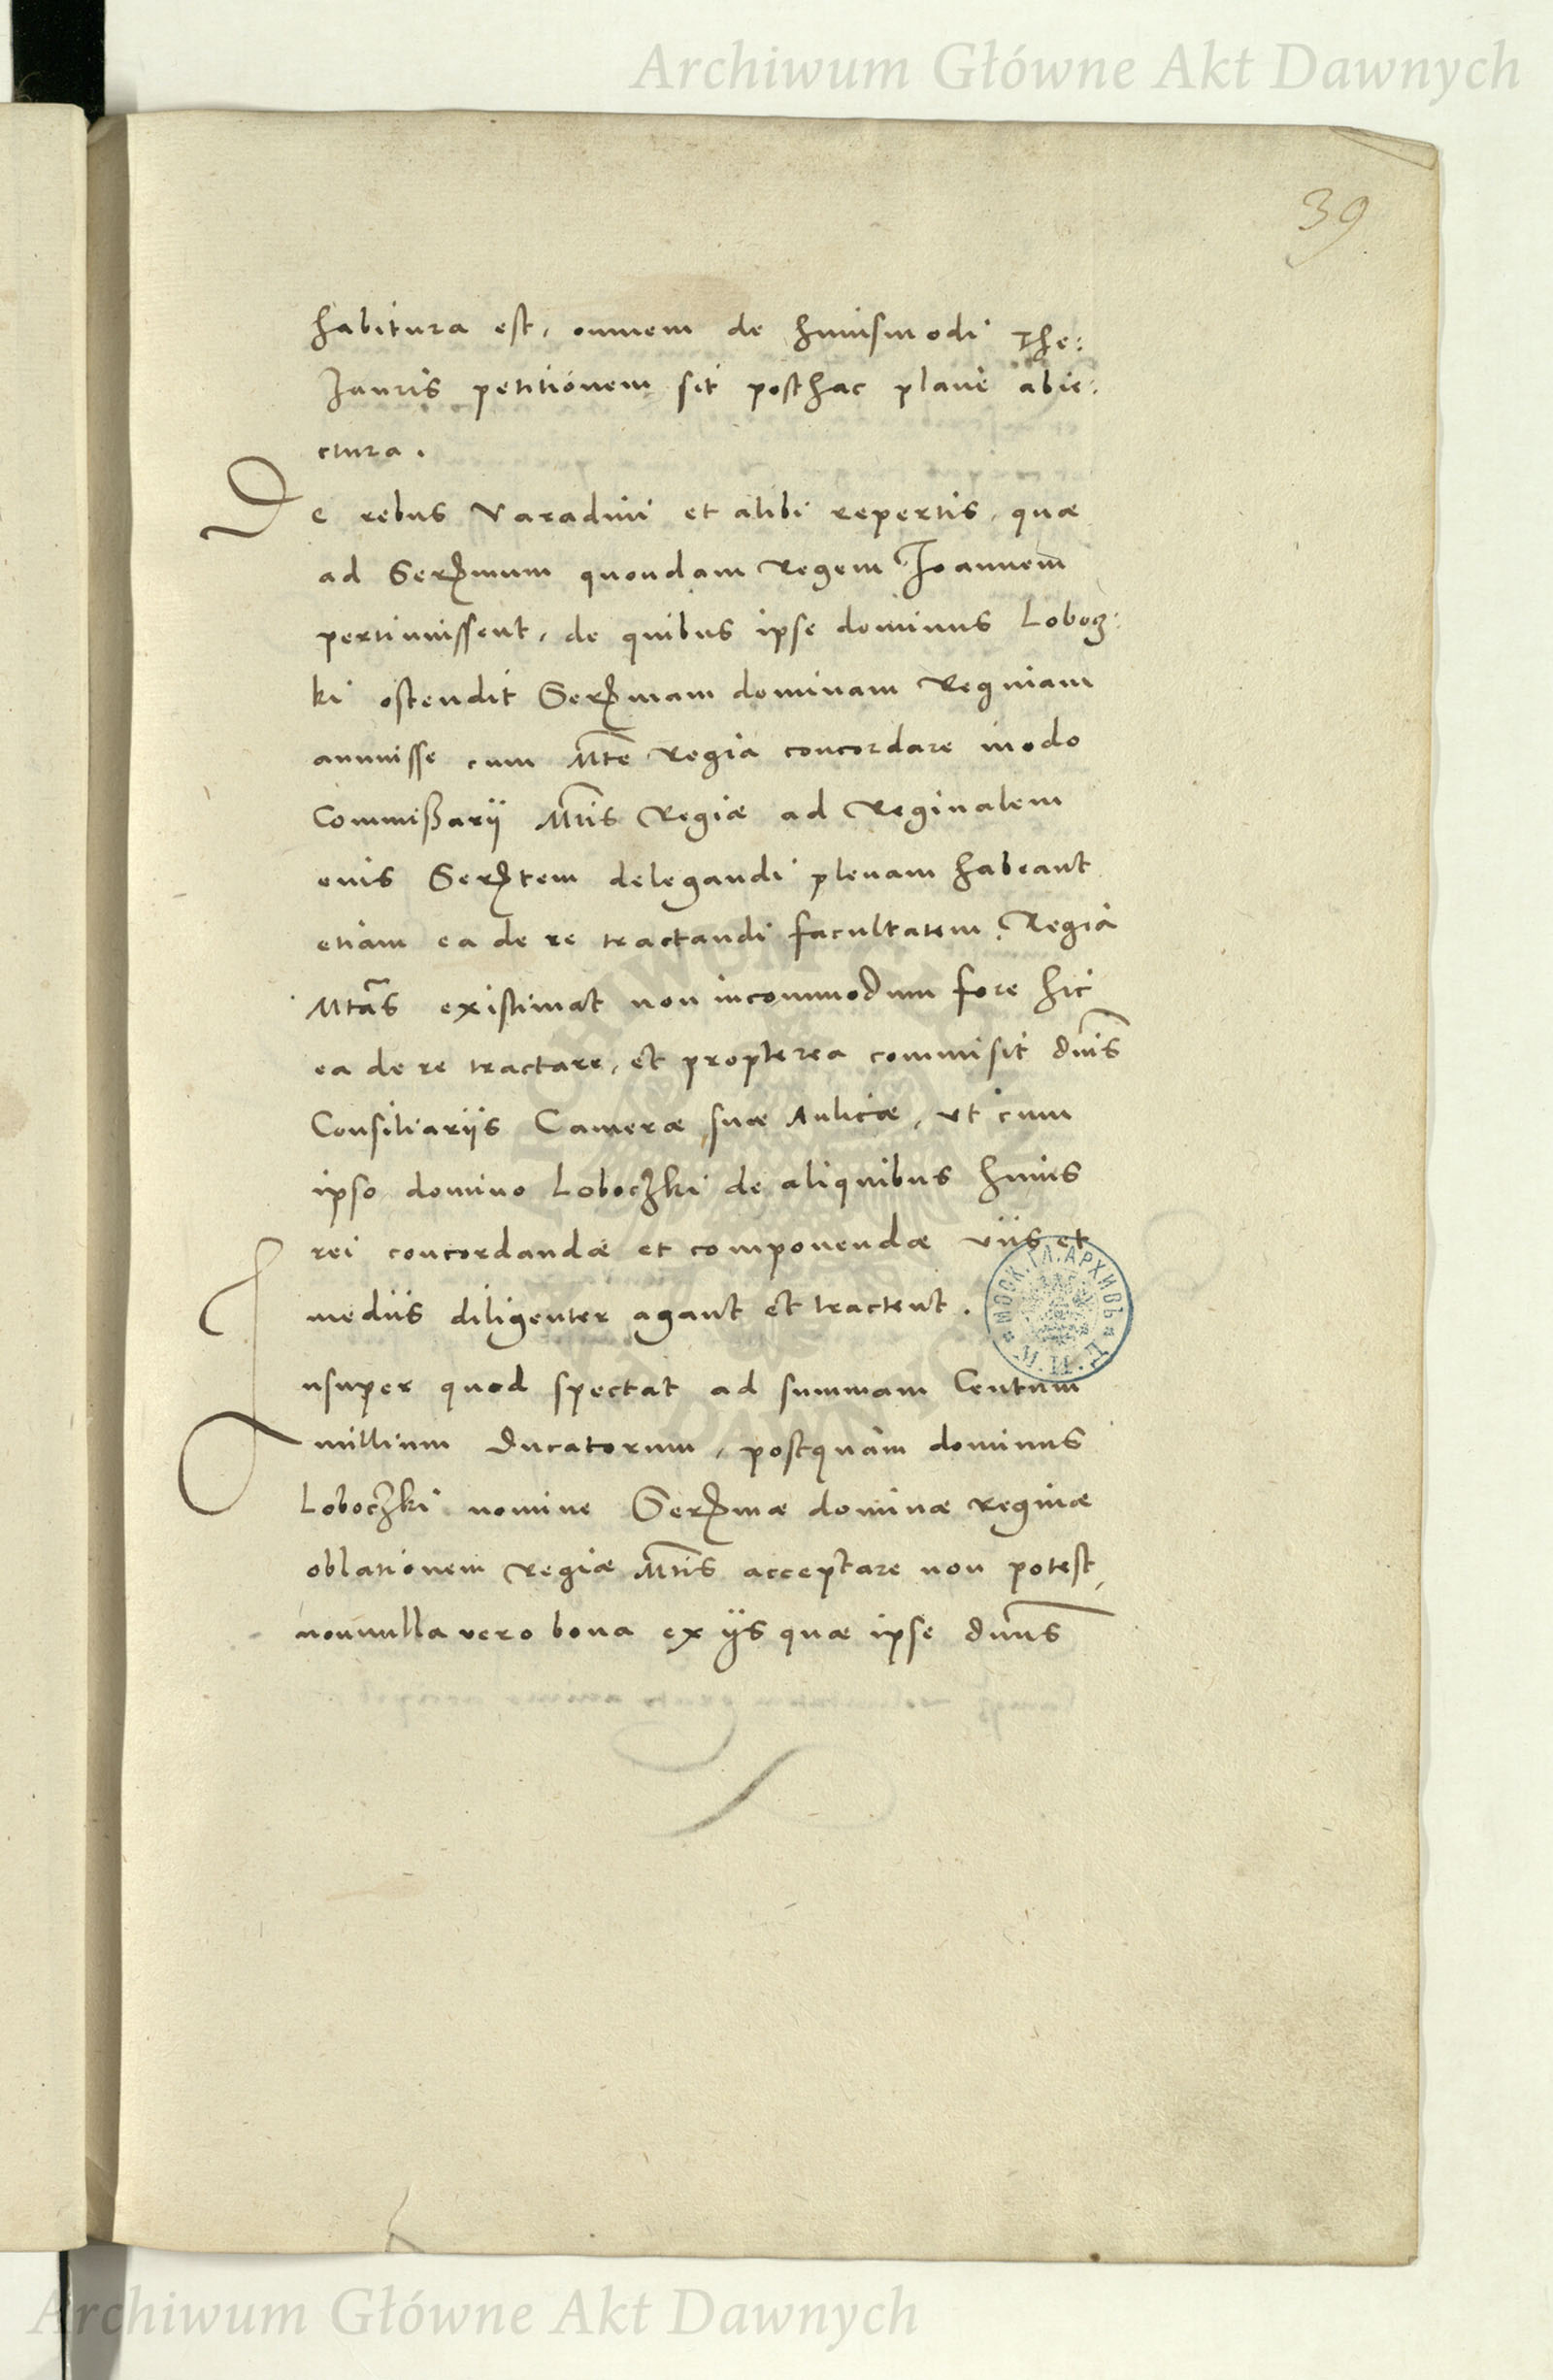 Archiwum Główne Akt Dawnych
39
habitura est, omnem de huiusmodi The:
sauris petitionem sit posthac planè abie:
ctura.
De rebus Varadini et alibi repertis, quæ
ad Serᵐmum quondam Regem Joannem
pertinuissent, de quibus ipse dominus Lobocz:
ki ostendit Serᵐmam dominam Reginam
annuisse cum Mte Regia concordare modo
Commissarij Mtis Regiæ ad Reginalem
eius Serᵗtem delegandi plenam habeant
etiam ea de re tractandi facultatem, Regia
Mtas existimat non incommodum fore hic
ea de re tractare, et propterea commisit dnis
Consiliarijs Cameræ suæ Aulicæ, vt cum
ipso domino Loboczki de aliquibus huius
rei concordandæ et componendæ viis et
mediis diligenter agant et tractent.
Insuper quod spectat ad summam Centum
millium Ducatorum, postquam dominus
Loboczki nomine Serᵐmæ dominæ reginæ
oblationem Regiæ Mtis acceptare non potest,
nonnulla vero bona ex ijs quæ ipse dnus
МОСК. ГЛ. АРХИВЪ
ARCHIWUM
DAWNYCH
Archiwum Główne Akt Dawnych